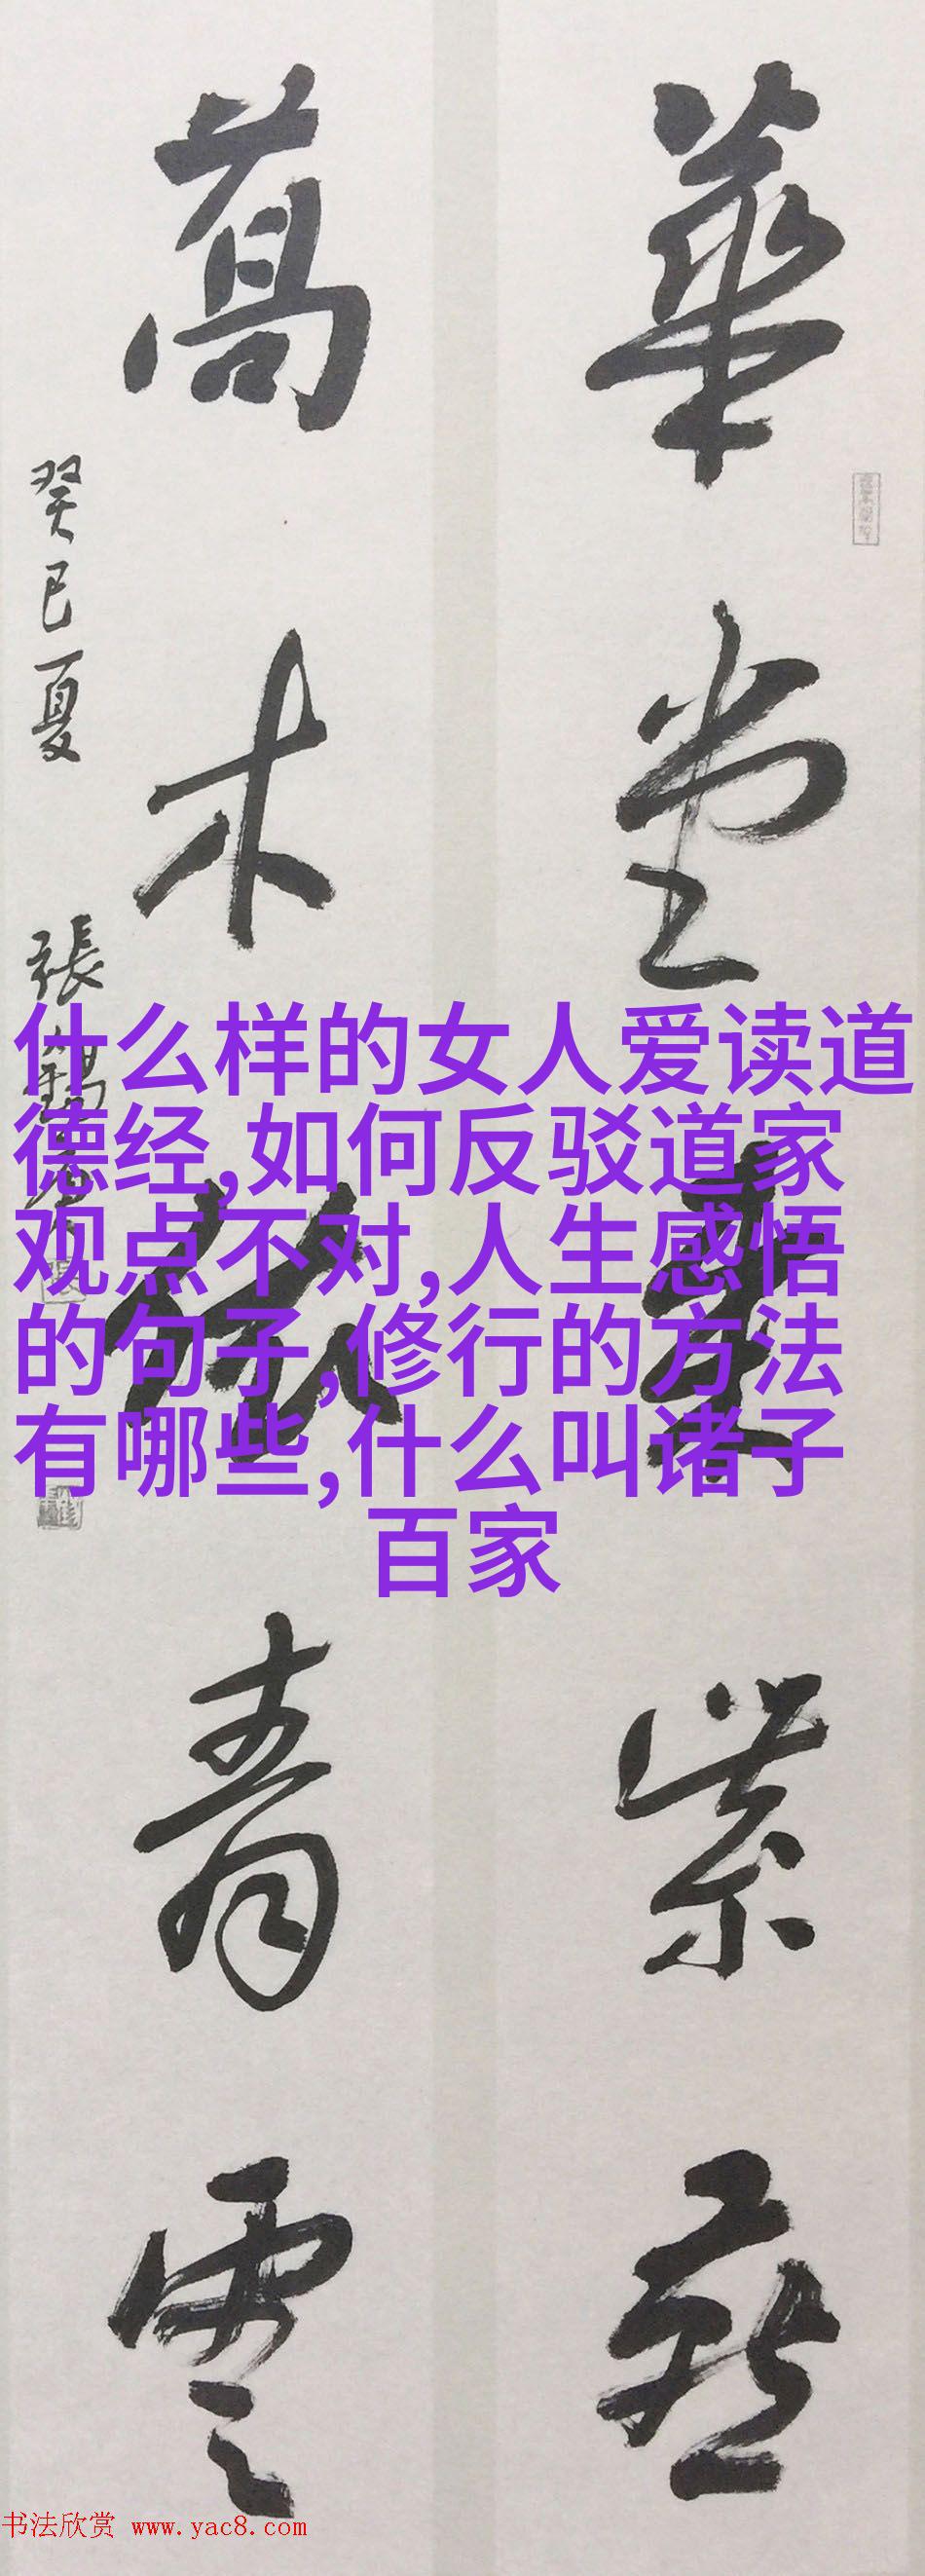 華堂紫燕
萬木青雲
癸巳夏 張錫
什么样的女人爱读道
德经,如何反驳道家
观点不对,人生感悟
的句子,修行的方法
有哪些,什么叫诸子
百家
书法欣赏 www.yac8.com